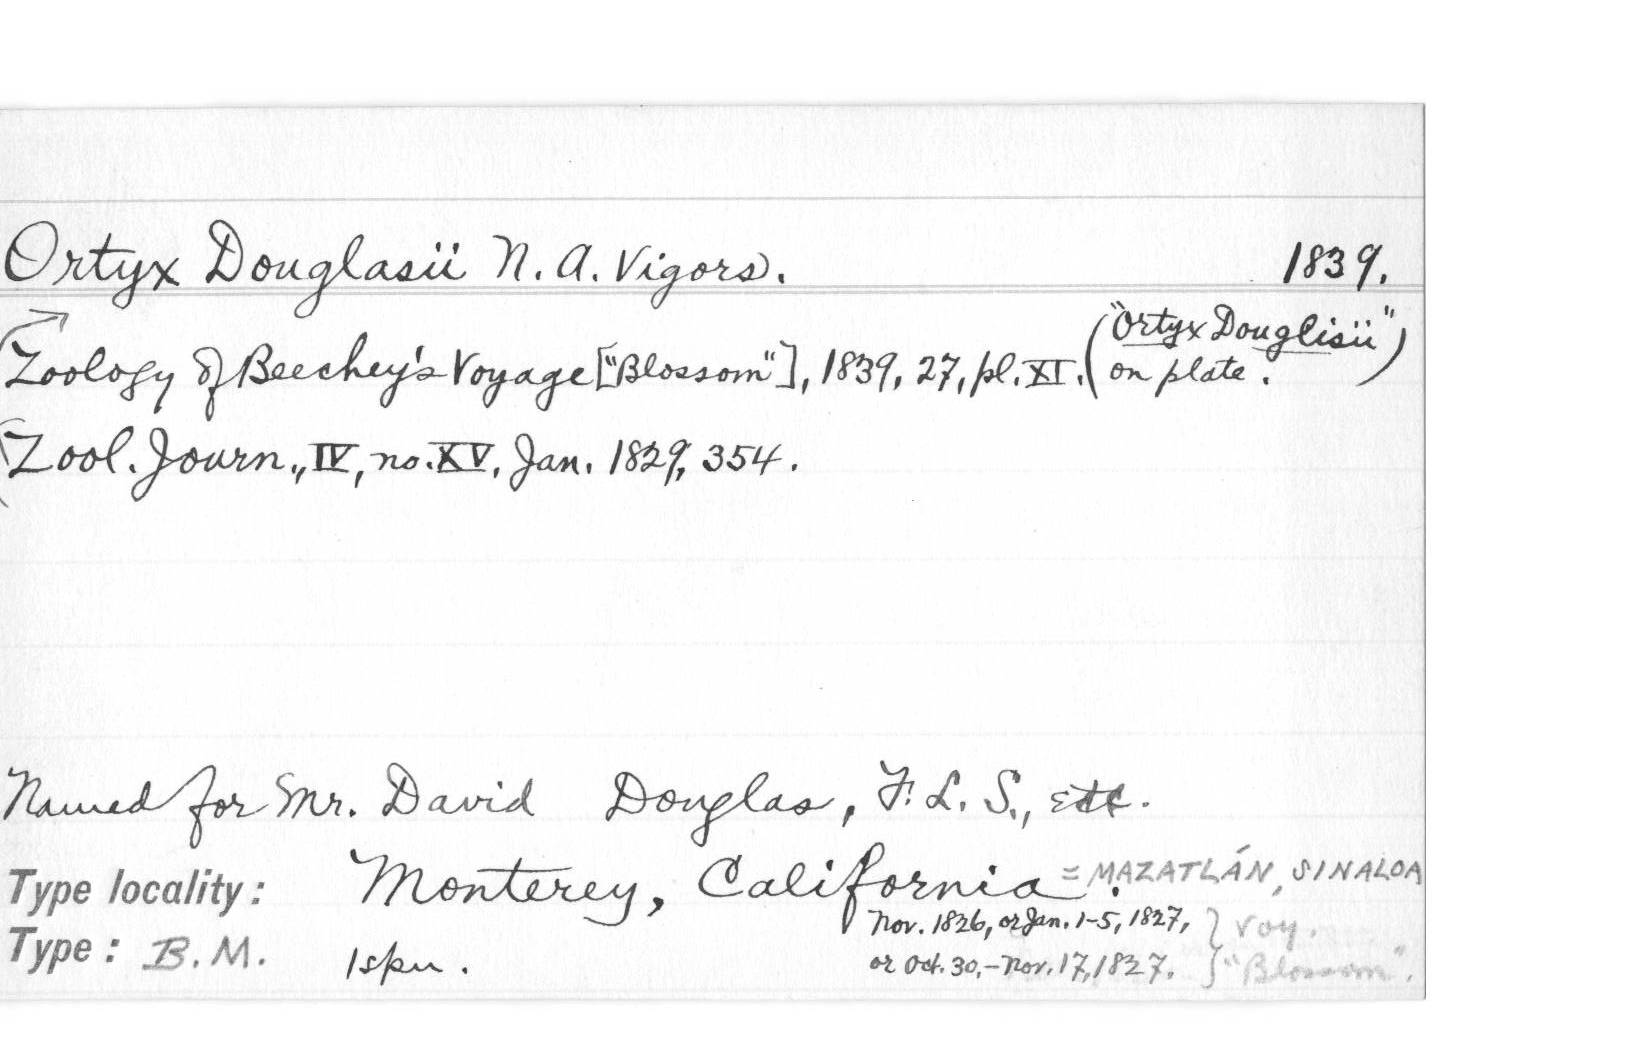 Ortyx Douglasii N. A. Vigors. 1839.
Zoology of Beechey's Voyage ["Blossom"], 1839, 27, pl. XI. ("Ortyx Douglisii" on plate.)
Zool. Journ., IV, no. XV, Jan. 1829, 354.
Named for Mr. David Douglas, F. L. S., etc.
Type locality: Monterey, California. = MAZATLÁN, SINALOA
Nov. 1826, or Jan. 1-5, 1827, } Voy.
Type: B. M. 1 spm. or Oct. 30,-Nov. 17, 1827. } "Blossom".